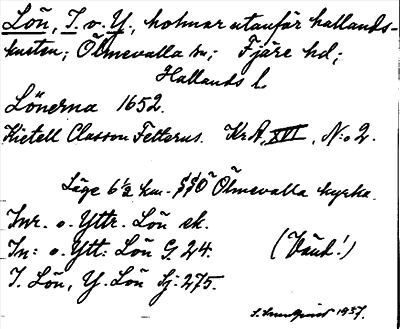 Lön, I. o. Y., holmar utanför hallands-
kusten; Ölmevalla sn; Fjäre hd;
Hallands l
Lönerna 1652.
Kietell Classon Felterus. Kr.A, XVI, N:o 2.
Läge 6½ km. SSO Ölmevalla kyrka.
Inr. o. Yttr. Lön ek.
In: o. Ytt: Lön G 24. (Vänd!)
I. Lön, Y. Lön Sj: 275.
1937.